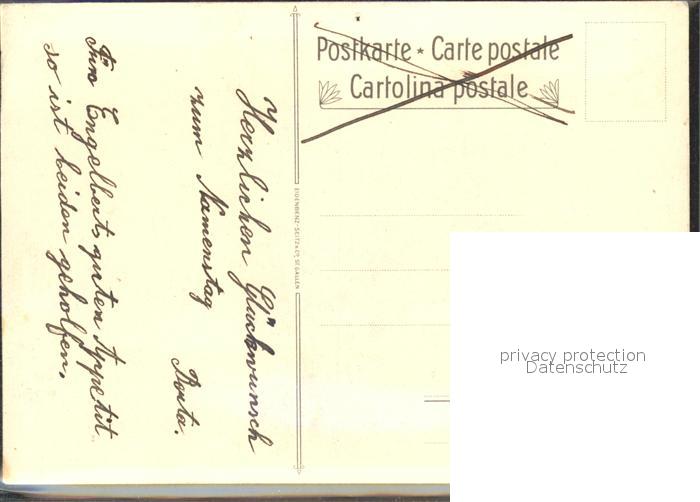 Postkarte * Carte postale
Cartolina postale
Herzlichen Glückwunsch
zum Namenstag
Berta.
Für Engelberts guten Appetit
so ist beiden geholfen.
EIGENBENZ-SEITZ & Co, ST. GALLEN
privacy protection
Datenschutz